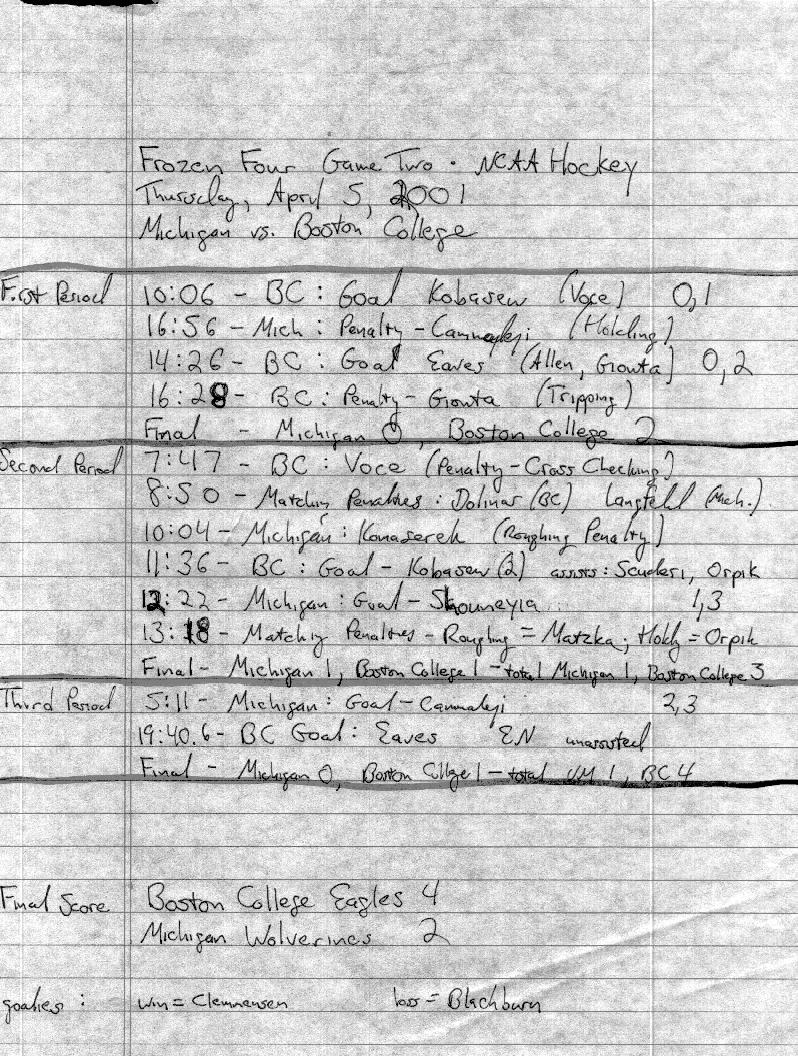 Frozen Four Game Two · NCAA Hockey
Thursday, April 5, 2001
Michigan vs. Boston College
First Period 10:06 - BC : Goal Kobasew (Voce) 0,1
16:56 - Mich : Penalty - Cammalleji (Holding)
14:26 - BC : Goal Eaves (Allen, Gionta) 0,2
16:28 - BC : Penalty - Gionta (Tripping)
Final - Michigan 0, Boston College 2
Second Period 7:47 - BC : Voce (Penalty - Cross Checking)
8:50 - Matching Penalties : Dolinar (BC) Langfeld (Mich.)
10:04 - Michigan : Komaserek (Roughing Penalty)
11:36 - BC : Goal - Kobasew (2) assists : Scuderi, Orpik
12:22 - Michigan : Goal - Shouneyia 1,3
13:18 - Matching Penalties - Roughing = Matzka; Holdg = Orpik
Final - Michigan 1, Boston College 1 - total Michigan 1, Boston College 3
Third Period 5:11 - Michigan : Goal - Cammaleji 2,3
19:40.6 - BC Goal : Eaves EN unassisted
Final - Michigan 0, Boston College 1 - total UM 1, BC 4
Final Score Boston College Eagles 4
Michigan Wolverines 2
goalies : win = Clemmensen loss = Blackburn